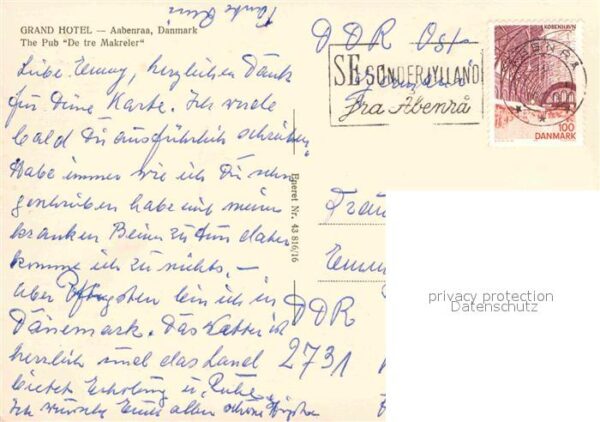 GRAND HOTEL — Aabenraa, Danmark
The Pub "De tre Makreler"
Liebe Emmy, herzlichen Dank
für Deine Karte. Ich werde
bald Dir ausführlich schreiben.
Habe immer wie ich Dir schon
geschrieben habe mit meinen
kranken Beinen zu tun daher
komme ich zu nichts. —
Über Pfingsten bin ich in
Dänemark. Das Wetter ist
herrlich und das Land
bietet Erholung u. Ruhe.
Ich wünsche Euch allen schöne
Eneret Nr. 43 816/16
DDR Ost
SE SØNDERJYLLAND
fra Åbenrå
ÅBENRÅ
KØBENHAVN
100
DANMARK
Frau
Emmy
DDR
2731
privacy protection
Datenschutz